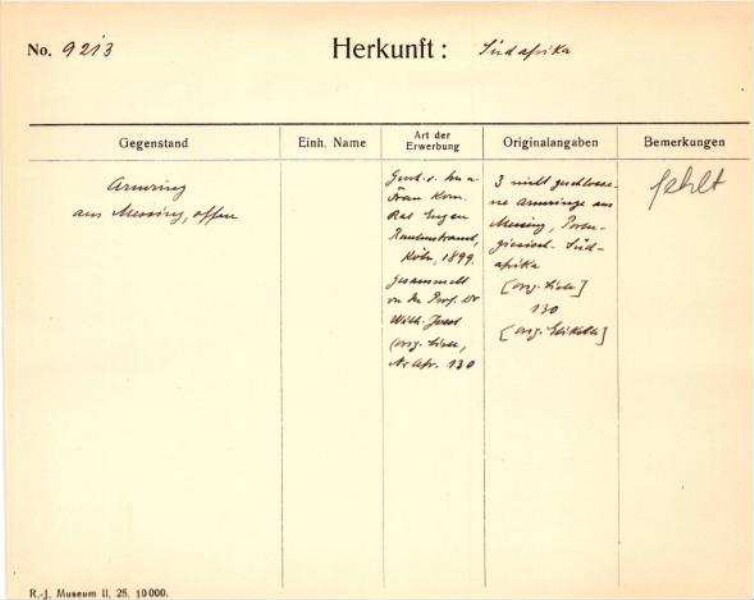 No. 9213 Herkunft: Südafrika
Gegenstand
Einh. Name
Art der
Erwerbung
Originalangaben
Bemerkungen
Armring
aus Messing, offen
Gesch. v. Hn u.
Frau Kom.
Rat Eugen
Rautenstrauch,
Köln, 1899.
gesammelt
von Prof. Dr
Wilh. Joest
(org. Liste,
Nr Afr. 130
3 nicht geschlosse-
ne Armringe aus
Messing, Portu-
giesisch-Süd-
afrika
[org. Liste]
130
[org. Etikett]
fehlt
R.-J. Museum II. 25. 10000.